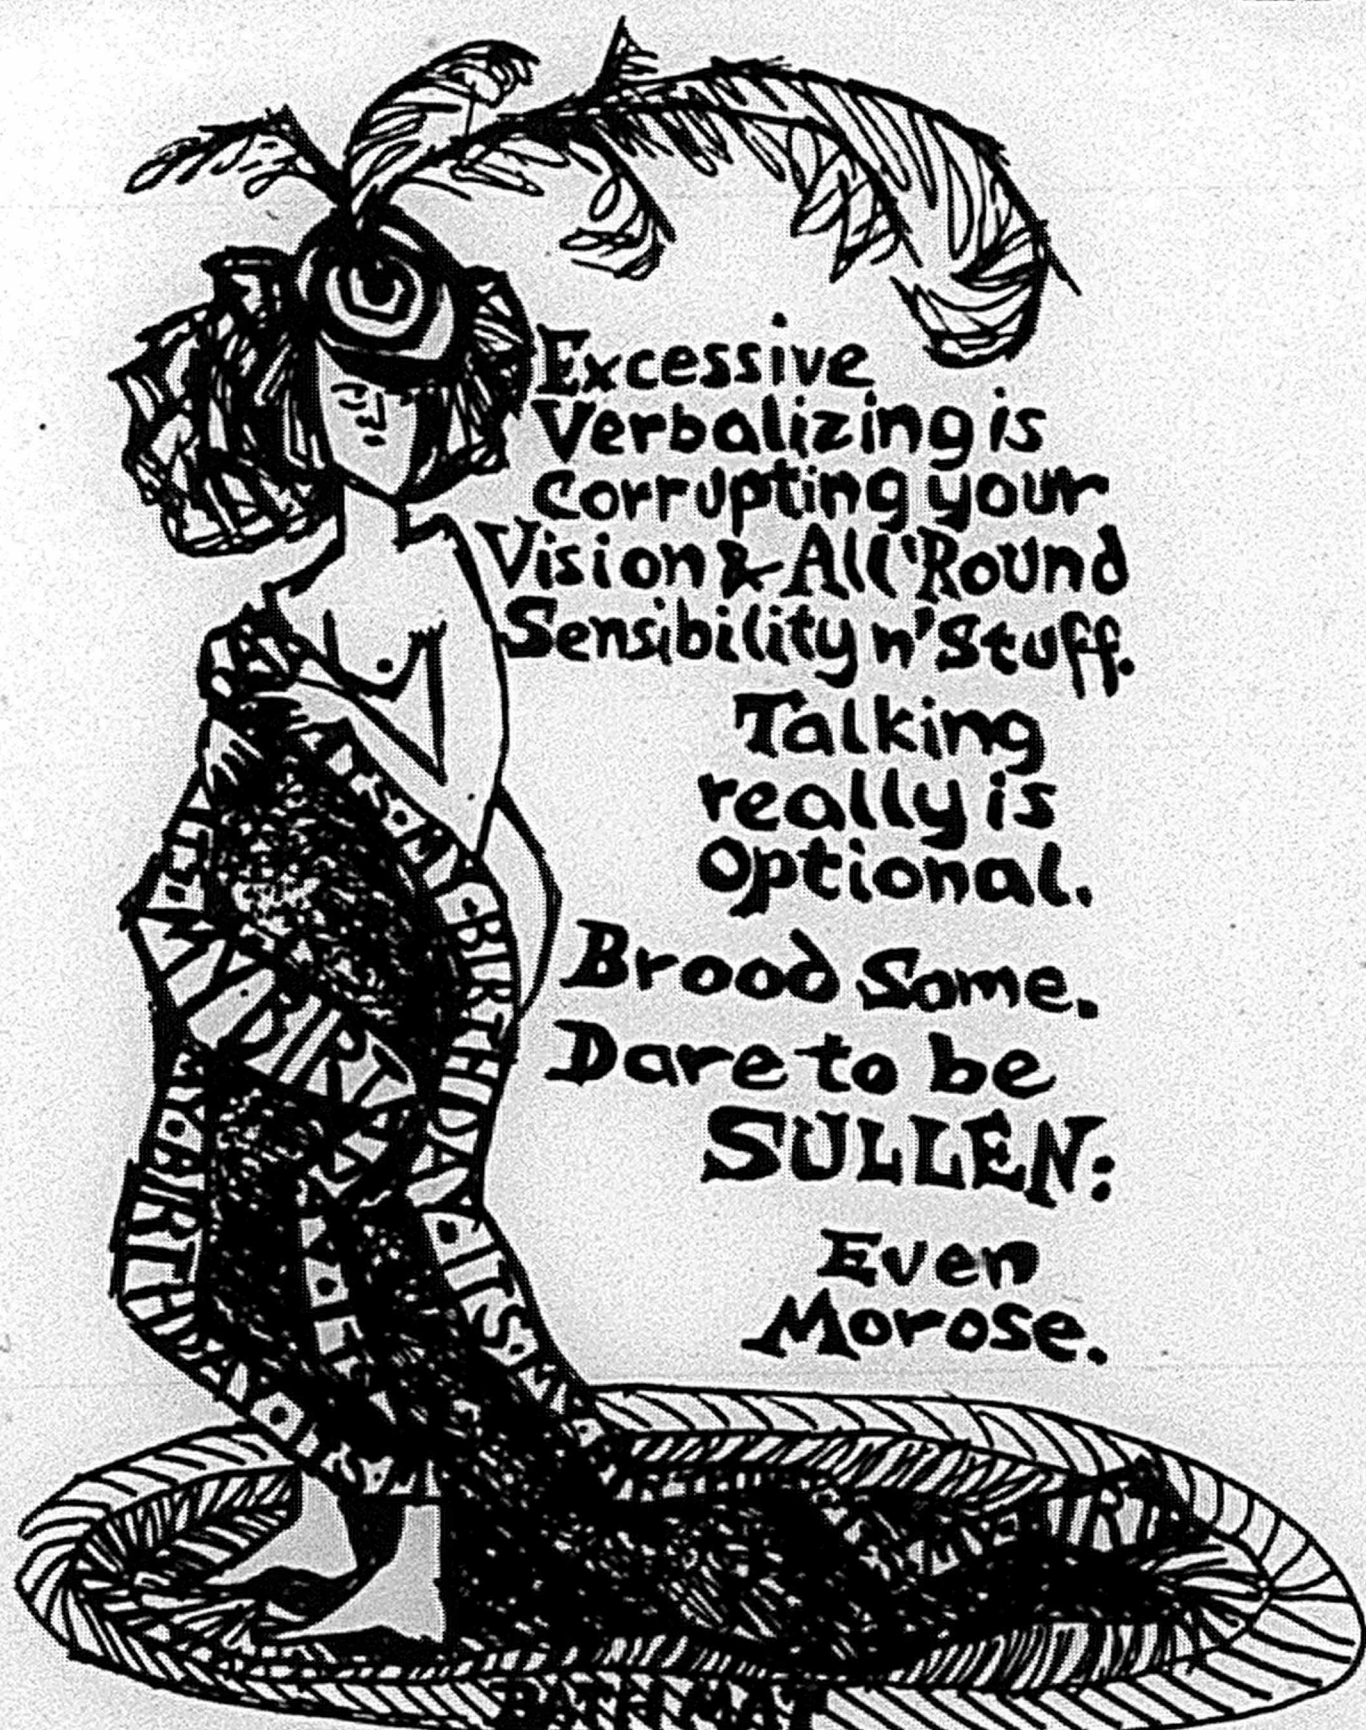 Excessive
Verbalizing is
Corrupting your
Vision & All 'Round
Sensibility n' Stuff.
Talking
really is
Optional.
Brood Some.
Dare to be
SULLEN:
Even
Morose.
ITS · MY · BIRTHDAY · ITS · MY
ITS · MY BIRTHDAY · ITS
MY · BIRTHDAY · ITS · M
BIRT
BATH MAT